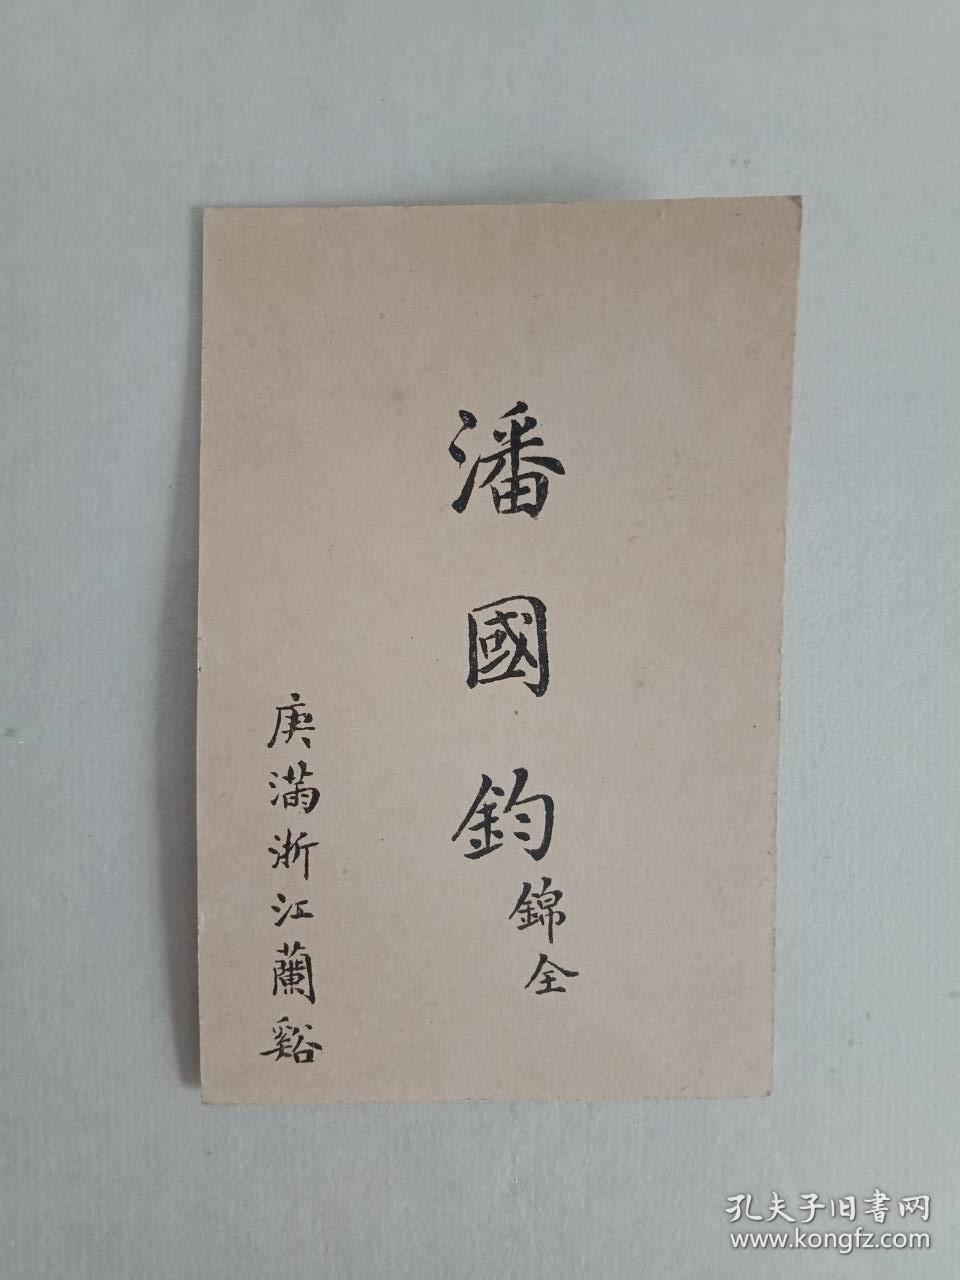 潘國鈞
錦全
庚滿浙江蘭谿
孔夫子旧書网
www.kongfz.com